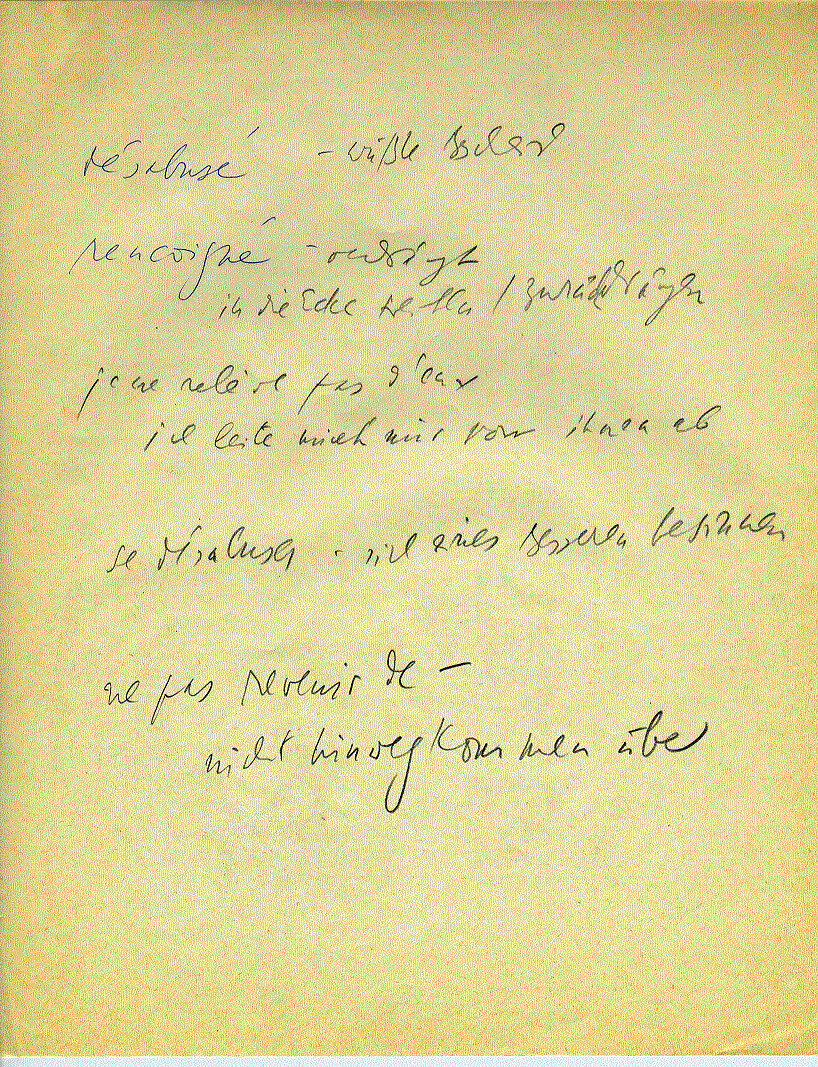 désabusé - wüßte Bescheid
rencoigné -
in die Ecke stellen / zurückdrängen
je ne relève pas d'eux
ich leite mich nur von ihnen ab
se désabuser - sich eines Besseren besinnen
ne pas revenir de —
nicht hinwegkommen über